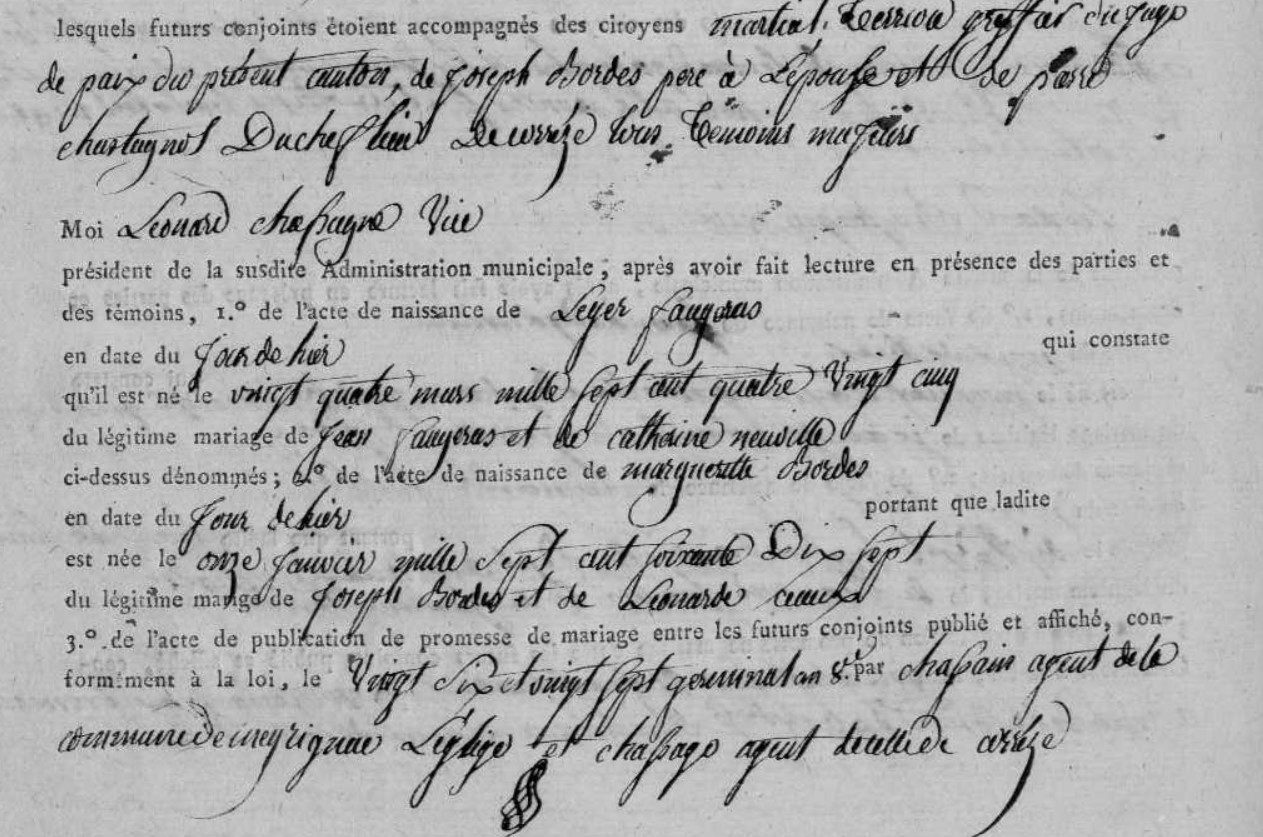 lesquels futurs conjoints étoient accompagnés des citoyens martial Terriou greffier du juge
de paix du présent canton, de joseph Bordes pere à Lépouse et de pierre
chastagnol Du chef lieu De corrèze tous Temoins majeurs
Moi Léonard chassagne Vice
président de la susdite Administration municipale, après avoir fait lecture en présence des parties et
des témoins, 1.º de l'acte de naissance de Leger faugeras
en date du jour de hier qui constate
qu'il est né le vingt quatre mars mille sept cent quatre Vingt cinq
du légitime mariage de jean faugeras et de catherine neuville
ci-dessus dénommés ; 2º de l'acte de naissance de margueritte Bordes
en date du jour de hier portant que ladite
est née le onze janvier mille sept cent soixante Dix sept
du légitime marige de joseph Bordes et de Léonarde ceaux
3.º de l'acte de publication de promesse de mariage entre les futurs conjoints publié et affiché, con-
formément à la loi, le Vingt six et vingt sept germinal an 8. par chassain agent de la
commune de meyrignac Léglize et chassago agent de celle de corrèze